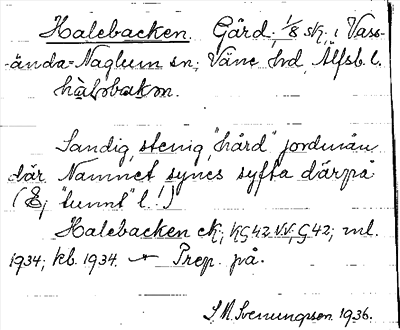 Halebacken. Gård, 1/8 sk, i Vass-
-ända-Naglum sn, Väne hd, Älfsb. l.
hàlәbakәn.
Sandig, stenig, "hård" jordmån
där. Namnet synes syfta därpå
(Ej "tunnt" l!)
Halebacken ek, KG42 VV, G42; ml.
1934; kb. 1934. Prep. på.
S. M. Svenungson 1936.